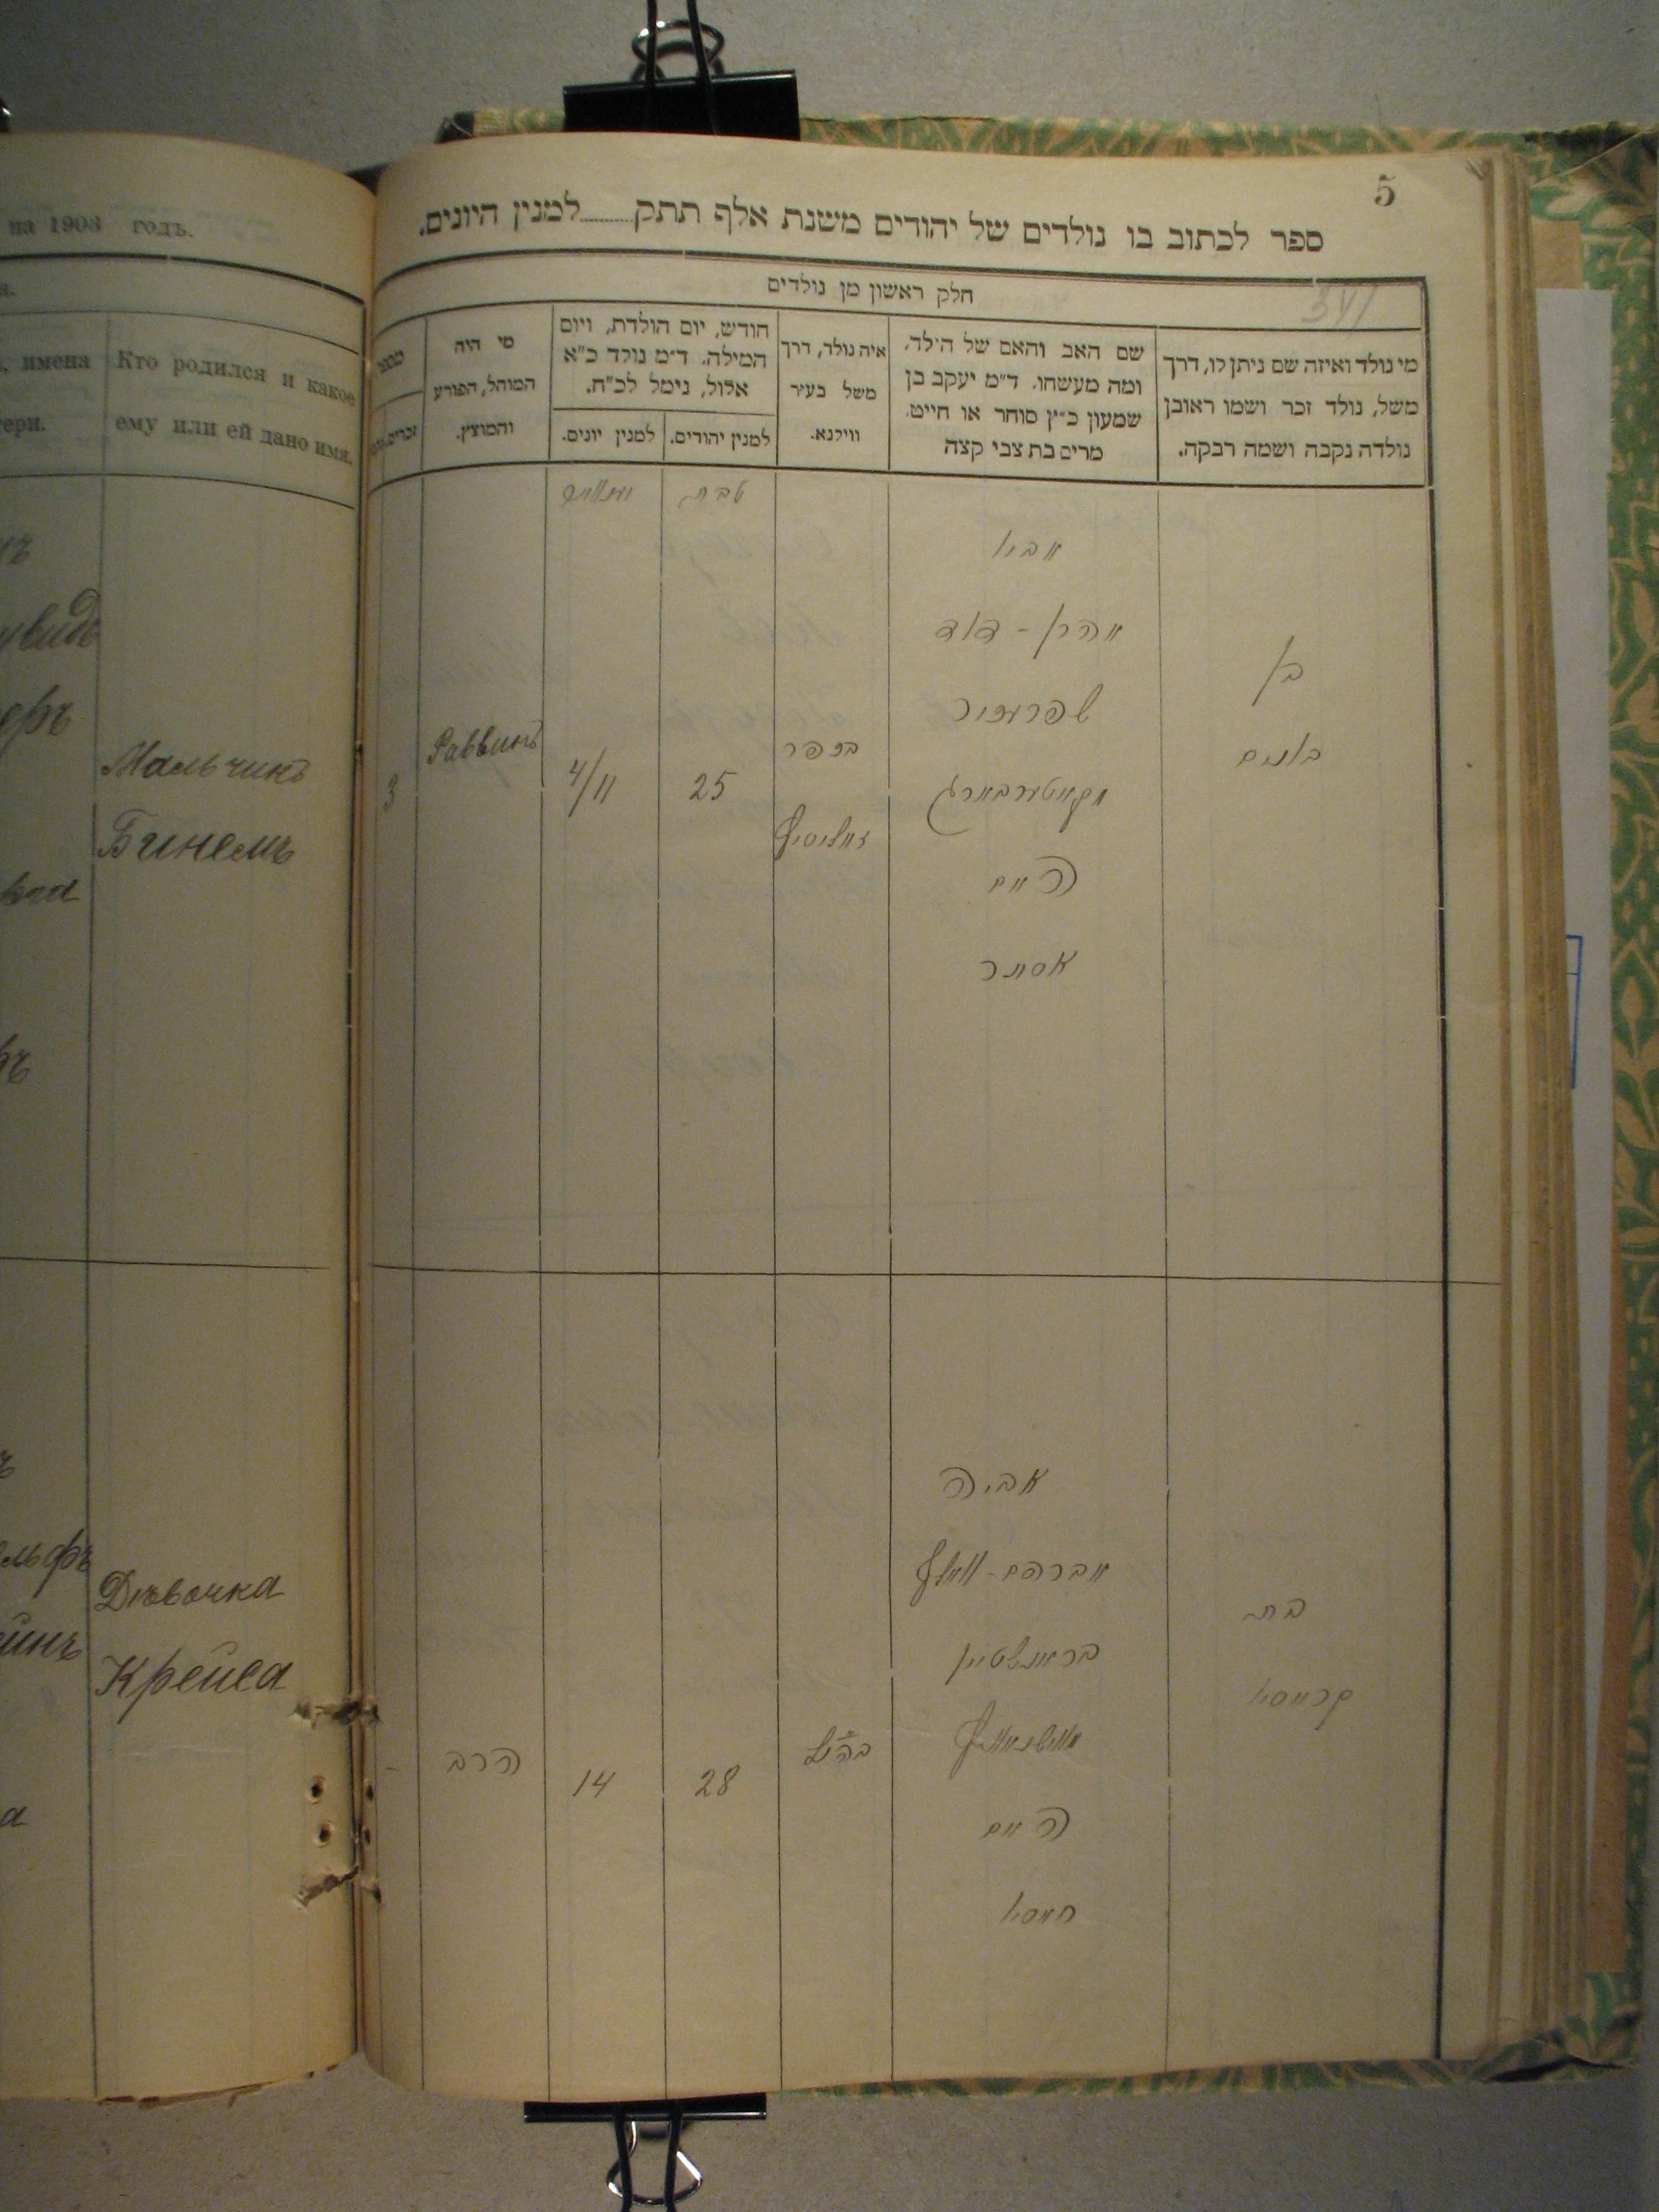 на 1903 годъ.
имена
тери.
Кто родился и какое
ему или ей дано имя.
Мальчикъ
Бинемъ
Дѣвочка
Крейса
5
ספר לכתוב בו נולדים של יהודים משנת אלף תתק למנין היונים.
חלק ראשון מן נולדים
מי נולד ואיזה שם ניתן לו, דרך
משל, נולד זכר ושמו ראובן
נולדה נקבה ושמה רבקה.
שם האב והאם של הילד,
ומה מעשהו. ד״מ יעקב בן
שמעון כ״ץ סוחר או חייט.
מרים בת צבי קצה
איה נולד, דרך
משל בעיר
ווילנא.
חודש, יום הולדת, ויום
המילה. ד״מ נולד כ״א
אלול, נימל לכ״ח.
למנין יהודים.
למנין יונים.
מי היה
המוהל, הפורע
והמוצץ.
מספר
זכרים
טבת
אביו
אהרן - דוד
בן
בונים
בכפר
25
4/11
Раввинъ
3
האם
אסתר
אביה
אברהם - וואלף
בת
בראנשטיין
קרייסא
28
14
הרב
האם
חייסא